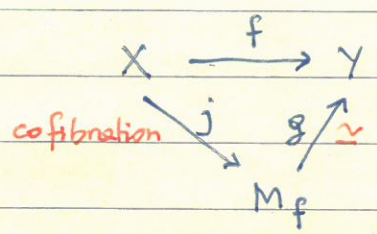 f
X → Y
cofibration j g ≃
M_f